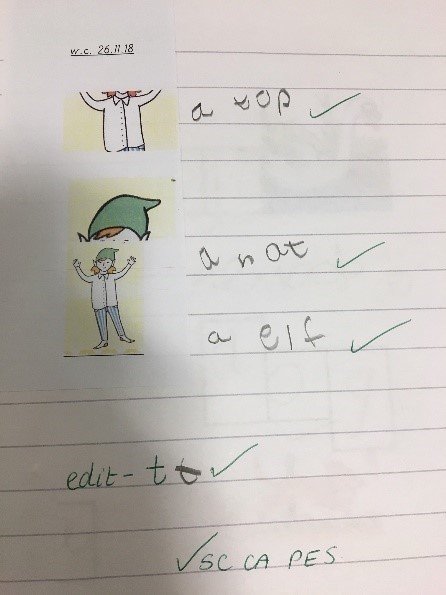 w.c. 26.11.18
a top
a hat
a elf
edit - t t
✓SC CA PES